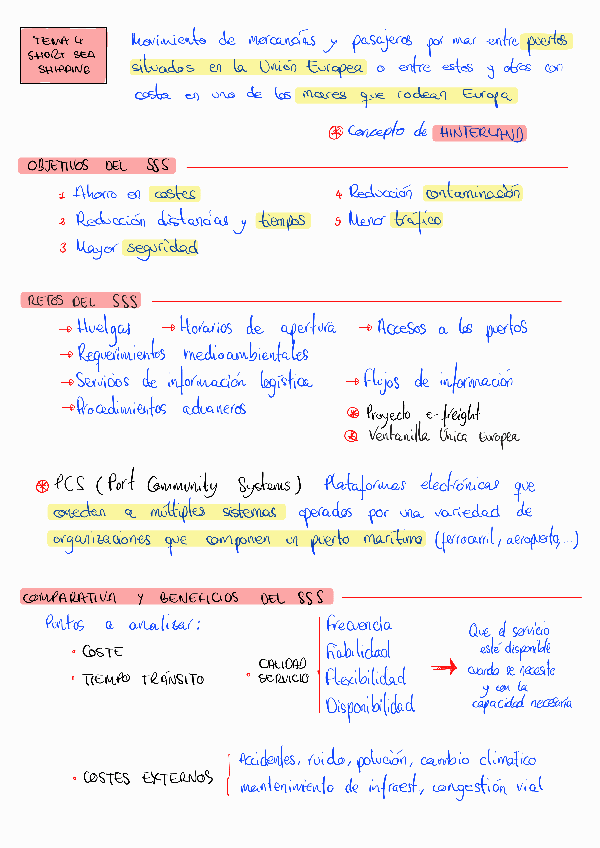 TEMA 4
SHORT SEA
SHIPPING
Movimiento de mercancías y pasajeros por mar entre puertos
situados en la Unión Europea o entre estos y otros con
costa en uno de los mares que rodean Europa
* Concepto de HINTERLAND
OBJETIVOS DEL SSS
1 Ahorro en costes
2 Reducción distancias y tiempos
3 Mayor seguridad
4 Reducción contaminación
5 Menor tráfico
RETOS DEL SSS
→ Huelgas → Horarios de apertura → Accesos a los puertos
→ Requerimientos medioambientales
→ Servicios de información logística → Flujos de información
→ Procedimientos aduaneros
* Proyecto e-freight
* Ventanilla Única Europea
* PCS (Port Community Systems) Plataformas electrónicas que
conectan a múltiples sistemas operados por una variedad de
organizaciones que componen un puerto marítimo (ferrocarril, aeropuerto,...)
COMPARATIVA Y BENEFICIOS DEL SSS
Puntos a analizar:
• COSTE
• TIEMPO TRÁNSITO
• CALIDAD
SERVICIO
Frecuencia
Fiabilidad
Flexibilidad
Disponibilidad
→ Que el servicio
esté disponible
cuando se necesite
y con la
capacidad necesaria
• COSTES EXTERNOS
Accidentes, ruido, polución, cambio climatico
mantenimiento de infraest, congestión vial